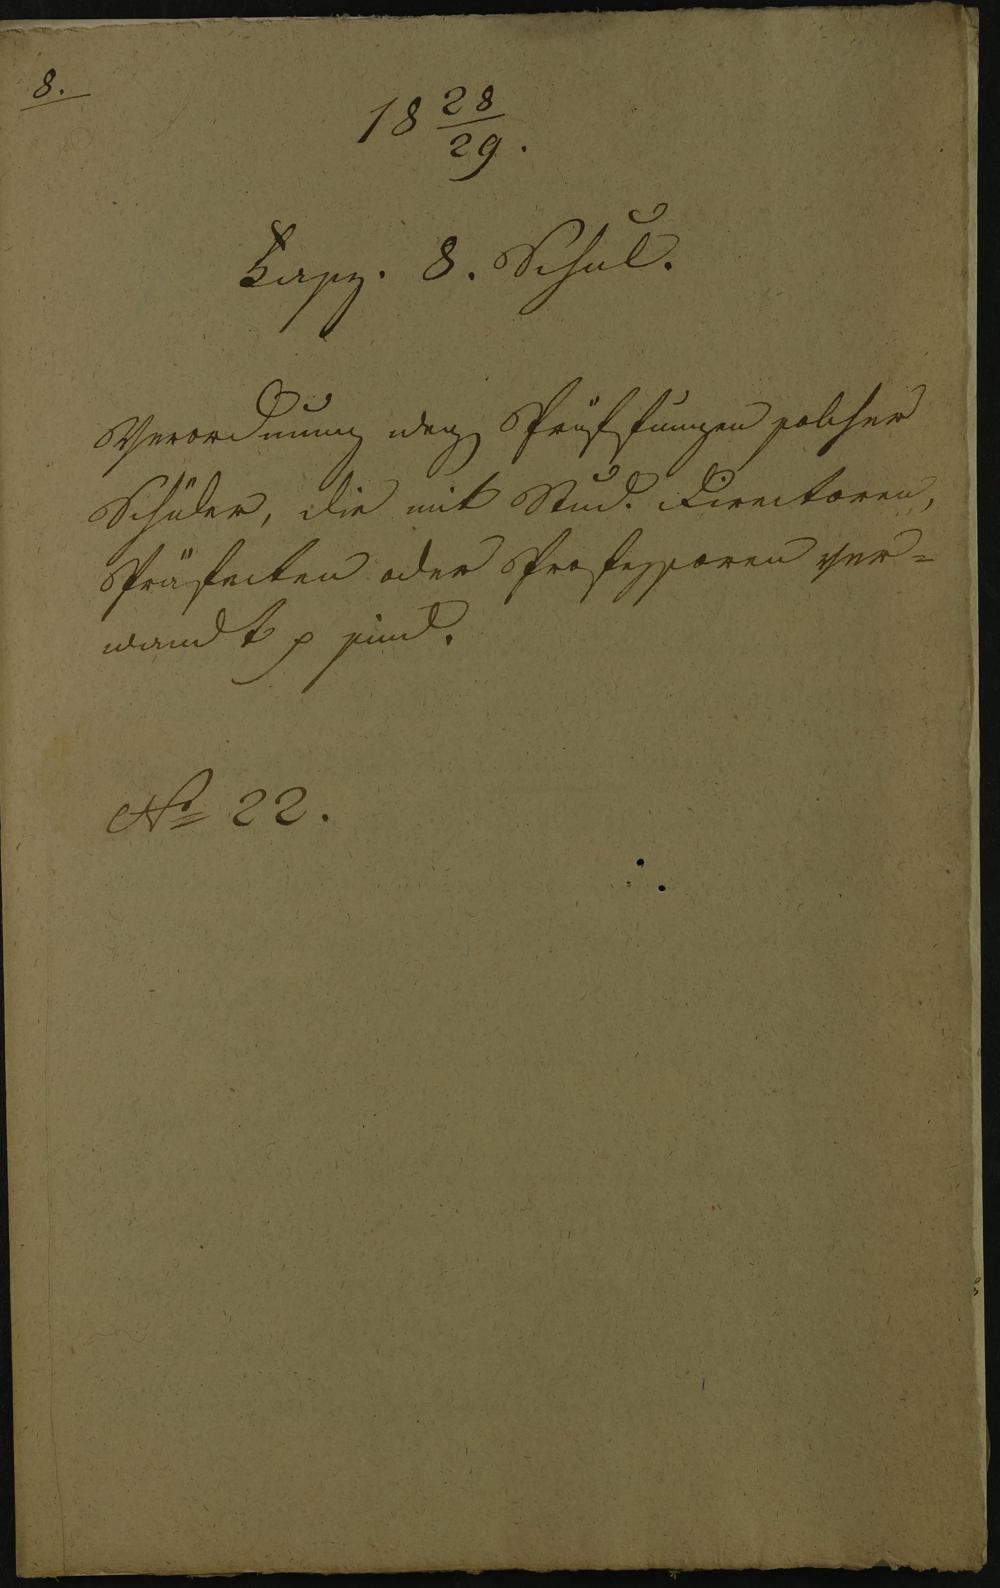 8.
18 28/29.
Fasz. 8. Schul.
Verordnung weg Prüffungen solcher
Schüler, die mit Stud. Directoren,
Präfecten oder Professoren ver=
wandt p sind.
No 22.